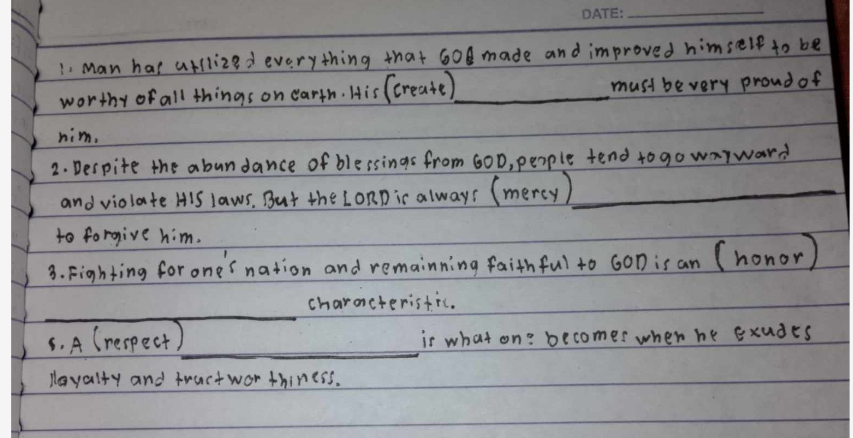 DATE: ____________
1. Man has utilized everything that GOD made and improved himself to be
worthy of all things on earth. His (create) ____________ must be very proud of
him.
2. Despite the abundance of blessings from GOD, people tend to go wayward
and violate HIS laws. But the LORD is always (mercy) ____________
to forgive him.
3. Fighting for one's nation and remainning faithful to GOD is an (honor)
____________ characteristic.
5. A (respect) ____________ is what one becomes when he exudes
loyalty and trustworthiness.